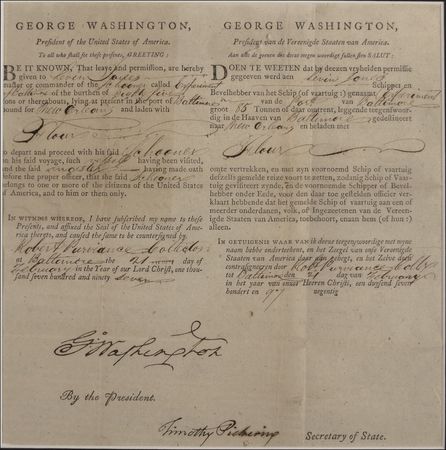 GEORGE WASHINGTON,
President of the United States of America.
To all who shall see these presents, GREETING:
BE IT KNOWN, That leave and permission, are hereby
given to Levin Jones
master or commander of the schooner called Experiment
of the burthen of
tons or thereabouts, lying at present in the port of Baltimore
bound for New Orleans and laden with
Flour
to depart and proceed with his said Schooner
on his said voyage, such having been visited,
and the said master having made oath
before the proper officer, that the said Schooner
belongs to one or more of the citizens of the United States
of America, and to him or them only.
IN WITNESS WHEREOF, I have subscribed my name to these
Presents, and affixed the Seal of the United States of America
thereto, and caused the same to be countersigned by
Robert Purviance Collector
at Baltimore the 21 day of
February in the Year of our Lord Christ, one thou-
sand seven hundred and ninety seven
GEORGE WASHINGTON,
President van de Vereenigde Staaten van America.
Aan alle de geenen die deeze tegenwoordige zullen sien SALUT:
DOEN TE WEETEN dat by deezen vryheiden permissie
gegeeven werd aen Levin Jones
Schipper en
Bevelhebber van het Schip (of vaartuig) genaamt Experiment
van de Port van Baltimore
groot 55 Tonnen of daar omtrent, leggende tegenwoor-
dig in de Haaven van Baltimore gedestineert
naar New Orleans en beladen met
Flour
omme vertrekken, en met zyn voornoemd Schip of vaartuig
deszelfs gemelde reize voort te zetten, zodanig Schip of Vaar-
tuig gevisiteert zynde, en de voornoemde Schipper of Bevel-
hebber onder Eede, voor den daar toe gestelden officier ver-
klaart hebbende dat het gemelde Schip of vaartuig aan een of
meerder onderdaanen, volk, of Ingezeetenen van de Vereenig-
de Staaten van America, toebehoort, aan hem (of hun)
alleen.
IN GETUIGENIS WAAR VAN
name hebbe onderteekent, en het Zeegel van de Vereenigde
Staaten van America daar aan gehegt, en het Zelve doen
contrasigneeren door Robt Purviance Collr
tot Baltimore den 21 dag van February
in het jaar van onzes Heeren Christi, een duyzend seven
hondert en 97 negentig
G. Washington
By the President.
Timothy Pickering Secretary of State.